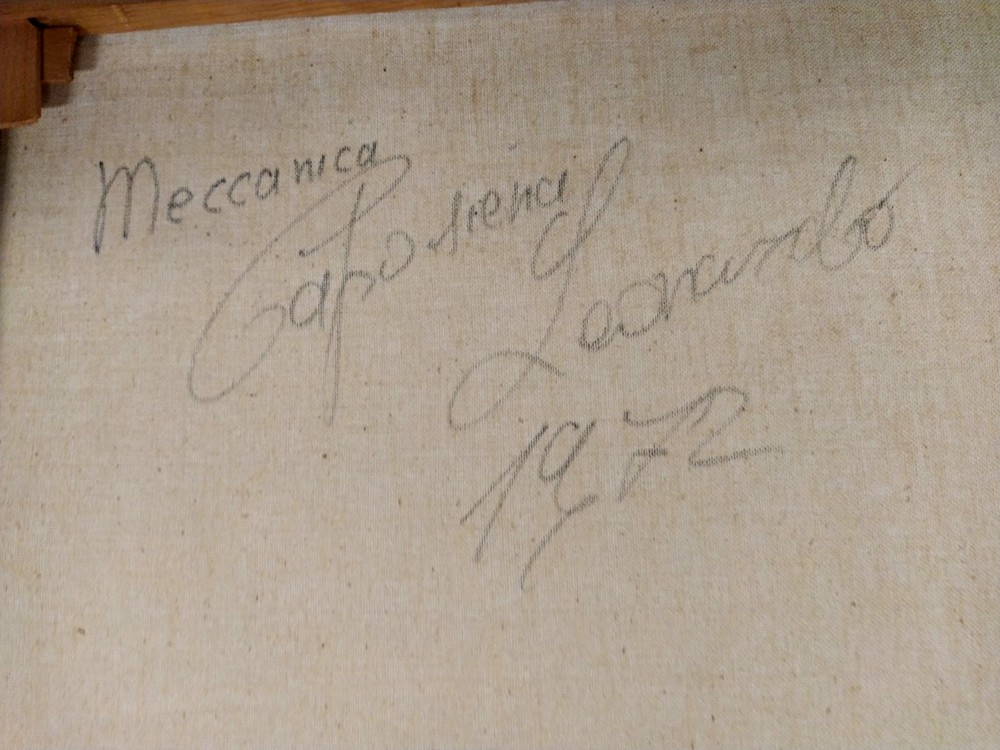 Meccanica
Caposiena Leonardo
1972